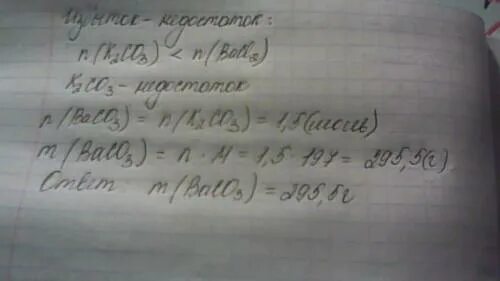 Избыток - недостаток:
n(K₂CO₃) < n(BaCl₂)
K₂CO₃ - недостаток
n(BaCO₃) = n(K₂CO₃) = 1,5(моль)
m(BaCO₃) = n · M = 1,5 · 197 = 295,5(г)
Ответ: m(BaCO₃) = 295,5г